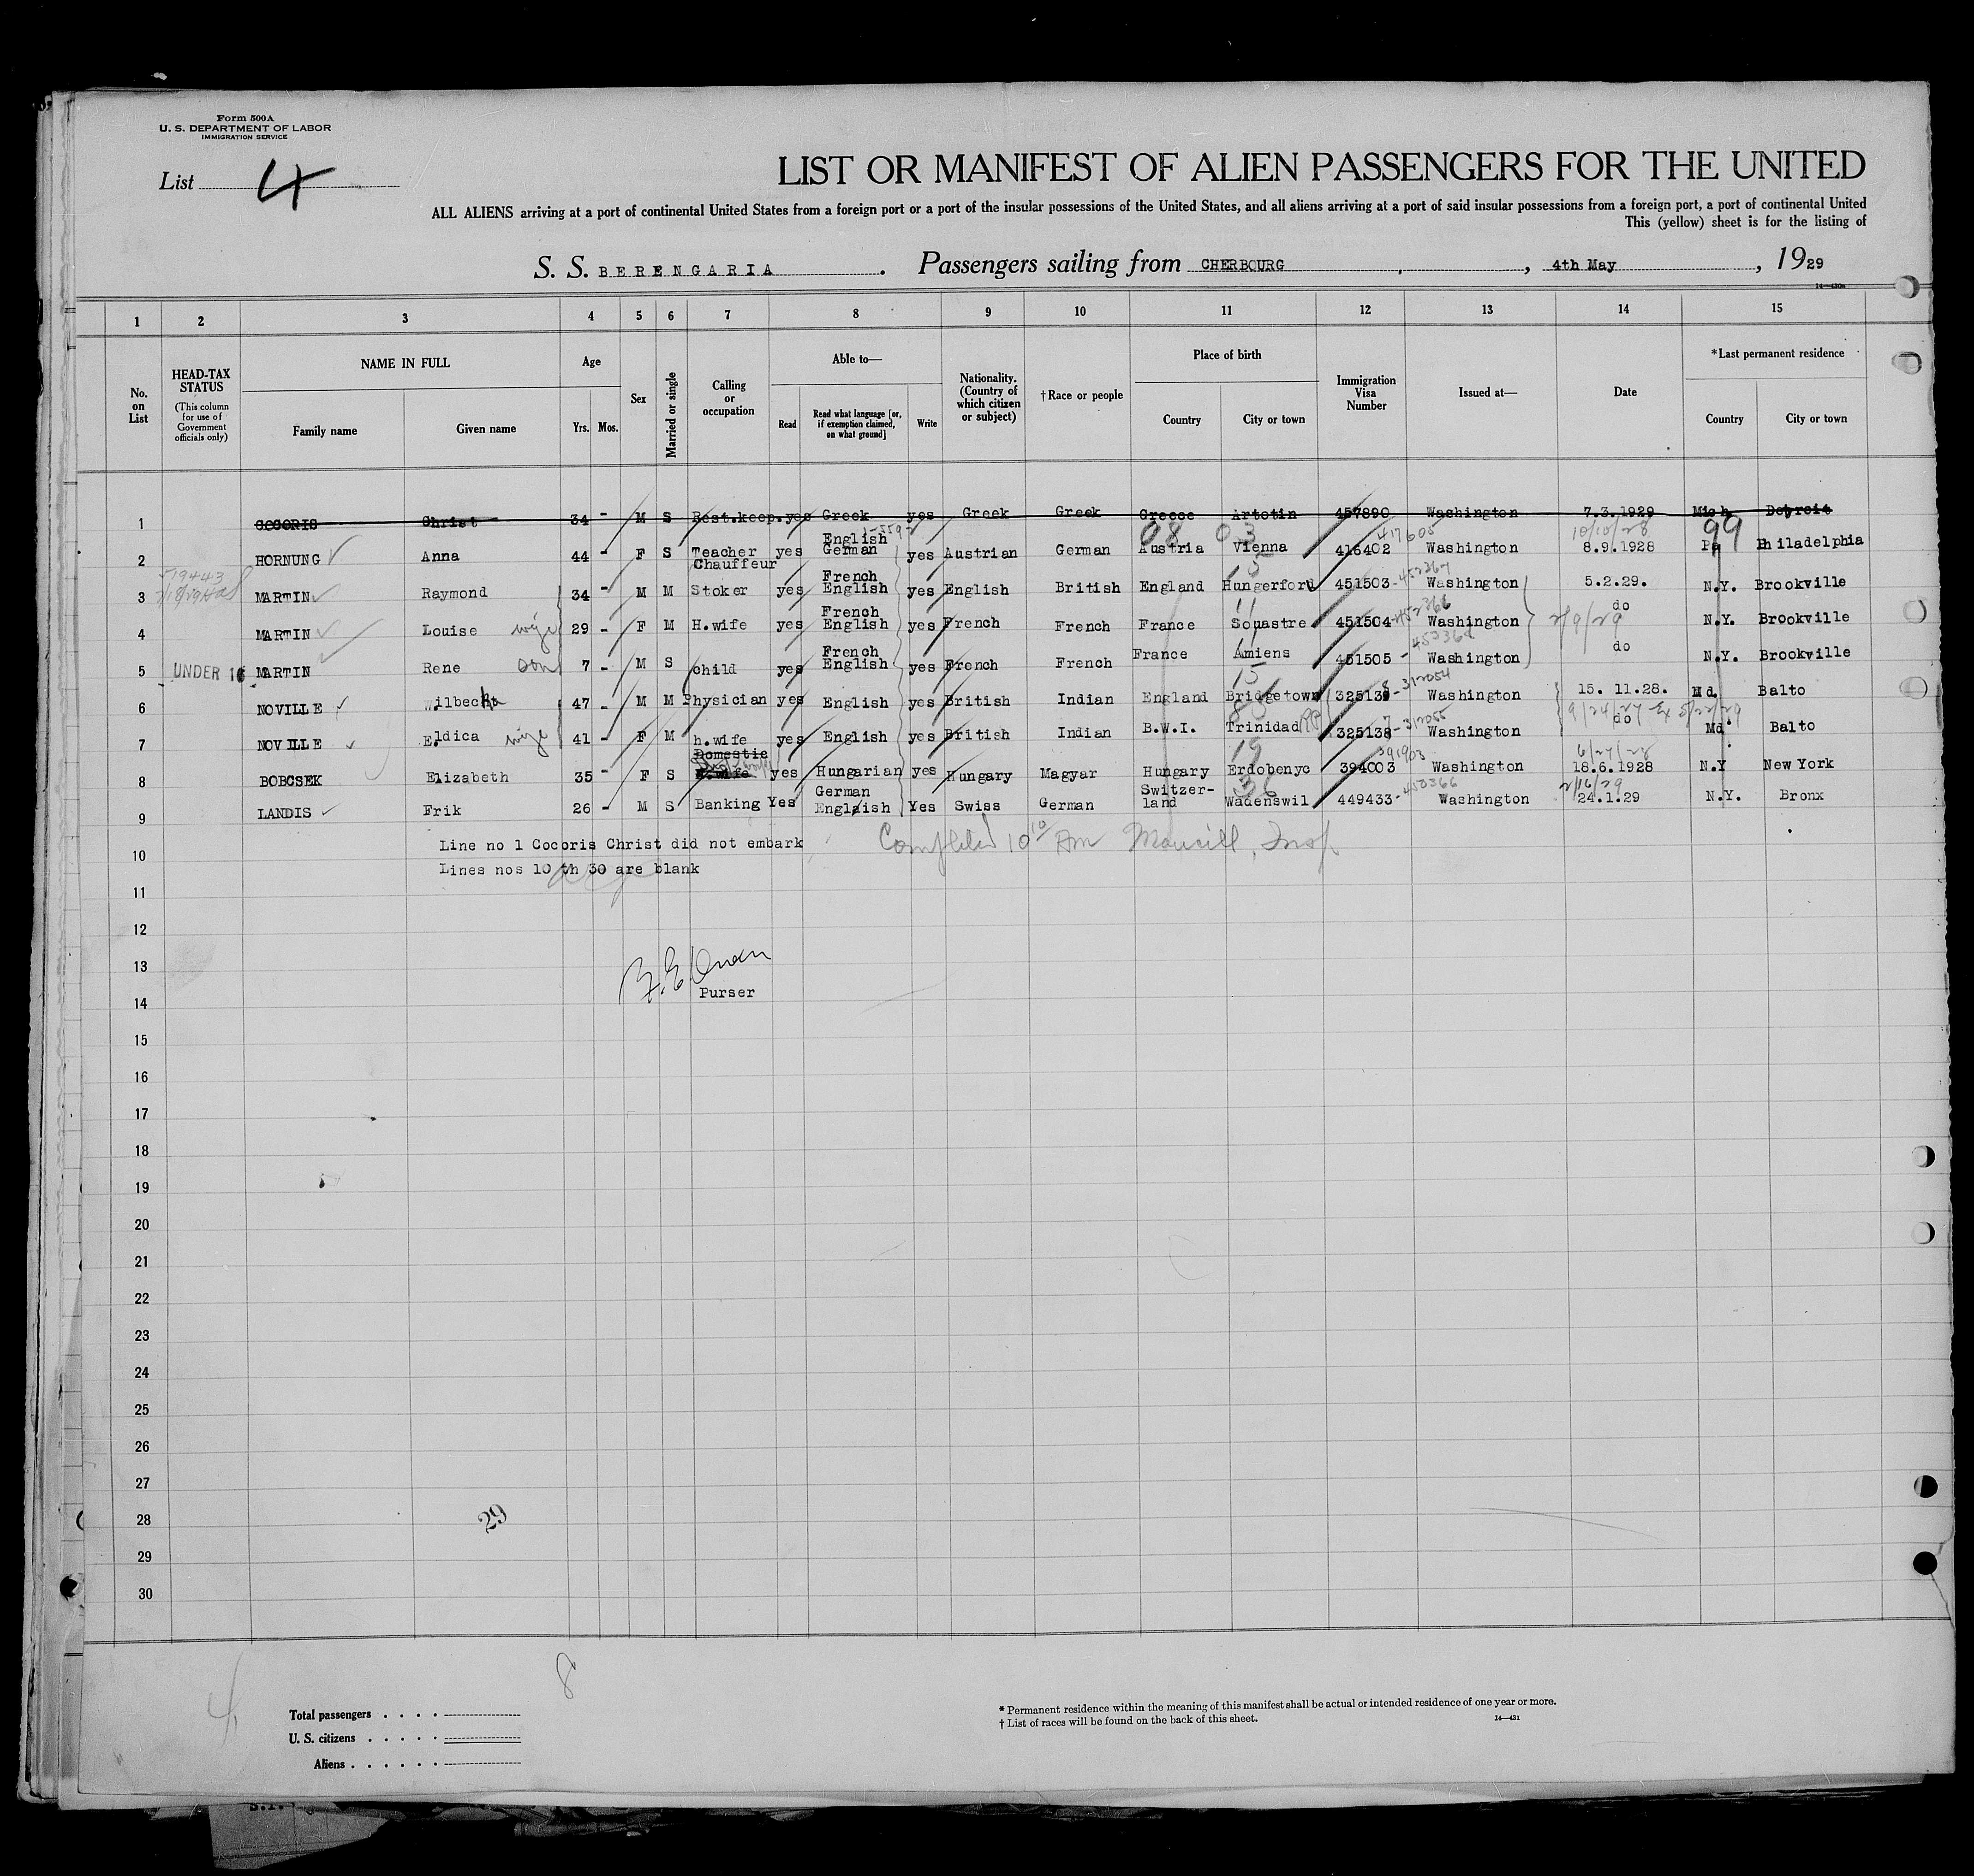 Form 500A
U. S. DEPARTMENT OF LABOR
IMMIGRATION SERVICE
List 4
LIST OR MANIFEST OF ALIEN PASSENGERS FOR THE UNITED
ALL ALIENS arriving at a port of continental United States from a foreign port or a port of the insular possessions of the United States, and all aliens arriving at a port of said insular possessions from a foreign port, a port of continental United
This (yellow) sheet is for the listing of
S. S. BERENGARIA. Passengers sailing from CHERBOURG, 4th May, 1929
14—430a
1 2 3 4 5 6 7 8 9 10 11 12 13 14 15
No. on List
HEAD-TAX STATUS (This column for use of Government officials only)
NAME IN FULL
Family name Given name
Age
Yrs. Mos.
Sex
Married or single
Calling or occupation
Able to—
Read Read what language [or, if exemption claimed, on what ground] Write
Nationality. (Country of which citizen or subject)
†Race or people
Place of birth
Country City or town
Immigration Visa Number
Issued at—
Date
*Last permanent residence
Country City or town
1 COCORIS Christ 34 - M S Rest.keep. yes Greek yes Greek Greek Greece Artotin 457890 Washington 7.3.1929 Mich Detroit
08 03 417605 10/10/28 99
2 HORNUNG Anna 44 - F S Teacher yes English German yes Austrian German Austria Vienna 416402 Washington 8.9.1928 Pa Philadelphia
3 MARTIN Raymond 34 - M M Chauffeur Stoker yes French English yes English British England Hungerford 451503 Washington 5.2.29. N.Y. Brookville
4 MARTIN Louise wife 29 - F M H.wife yes French English yes French French France Souastre 451504 Washington do 2/9/29 N.Y. Brookville
5 UNDER 16 MARTIN Rene son 7 - M S child yes French English yes French French France Amiens 451505 Washington do N.Y. Brookville
6 NOVILLE Wilbect 47 - M M Physician yes English yes British Indian England Bridgetown 325139 Washington 15. 11.28. Md. Balto
7 NOVILLE E.ldica wife 41 - F M h.wife yes English yes British Indian B.W.I. Trinidad 325138 Washington do Md Balto
8 BOBCSEK Elizabeth 35 - F S Domestic H.wife yes Hungarian yes Hungary Magyar Hungary Erdobenyc 394003 Washington 18.6.1928 N.Y New York
9 LANDIS Frik 26 - M S Banking Yes German English Yes Swiss German Switzer-land Wadenswil 449433 Washington 2/16/29 24.1.29 N.Y. Bronx
10 Line no 1 Cocoris Christ did not embark
Lines nos 10 th 30 are blank
11
12
13
14 Purser
15
16
17
18
19
20
21
22
23
24
25
26
27
28 29
29
30
4 8
Total passengers . . . .
U. S. citizens . . . . .
Aliens . . . . . .
* Permanent residence within the meaning of this manifest shall be actual or intended residence of one year or more.
† List of races will be found on the back of this sheet. 14—431